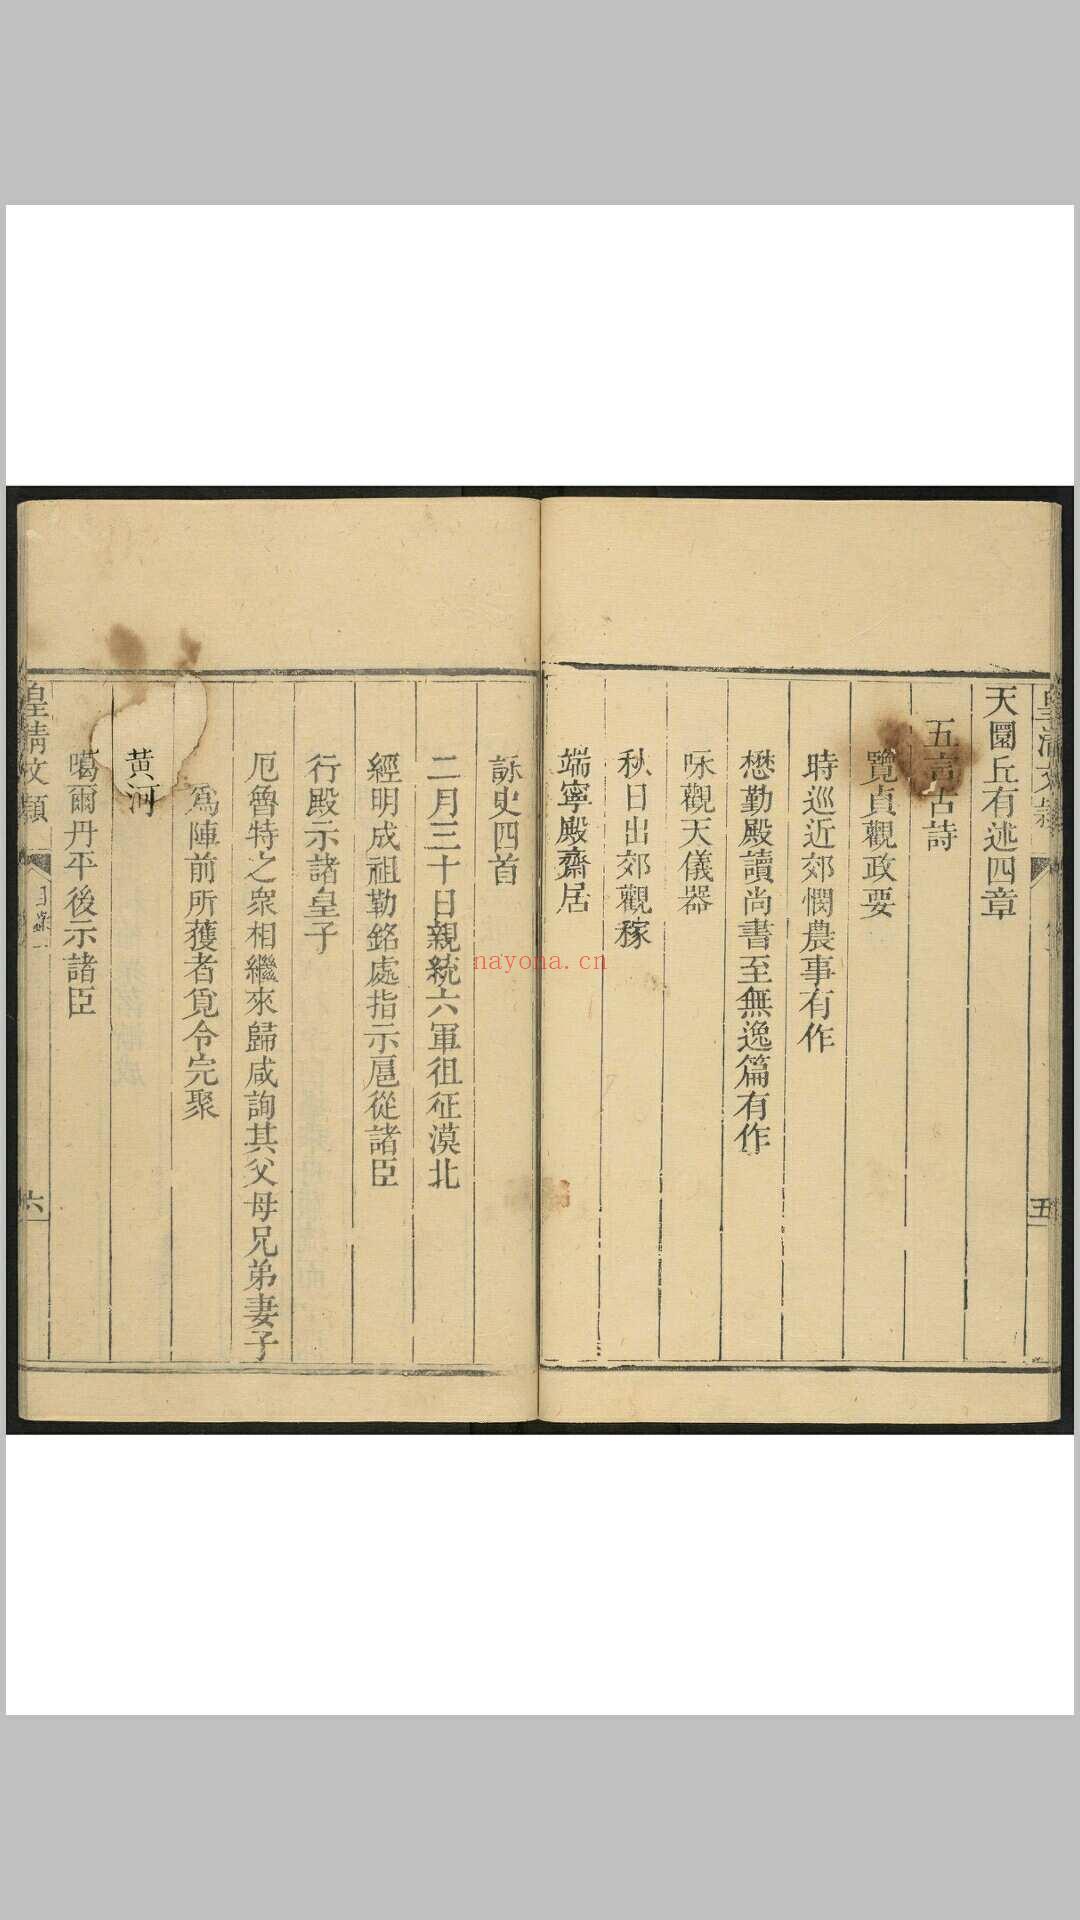 天圜丘有述四章
五言古詩
覽貞觀政要
時巡近郊憫農事有作
懋勤殿讀尚書至無逸篇有作
咏觀天儀器
秋日出郊觀稼
端寧殿齋居
五
詠史四首
二月三十日親統六軍徂征漠北
經明成祖勒銘處指示扈從諸臣
行殿示諸皇子
厄魯特之衆相繼來歸咸詢其父母兄弟妻子
為陣前所獲者覓令完聚
黃河
噶爾丹平後示諸臣
皇清文類
目錄一
六
nayona.cn